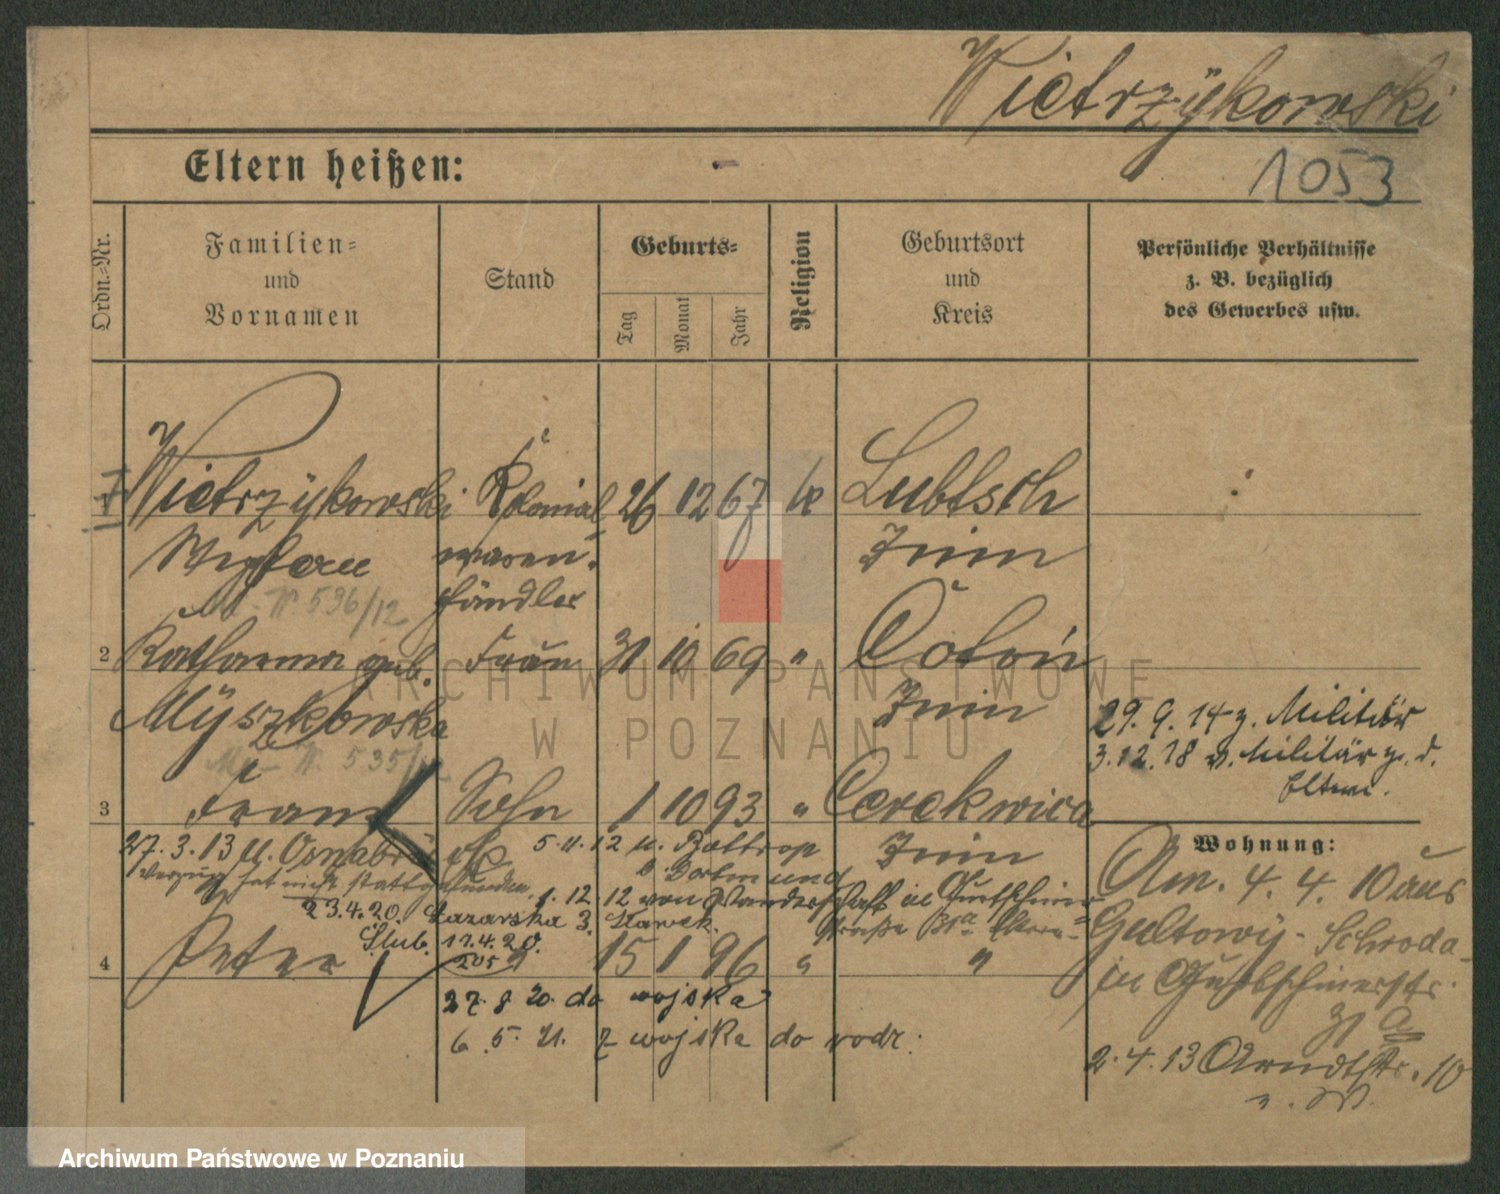 Wietrzykowski
Eltern heißen: -
1053
Ordn.-Nr.
Familien-
und
Vornamen
Stand
Geburts-
Tag
Monat
Jahr
Religion
Geburtsort
und
Kreis
Persönliche Verhältnisse
z. B. bezüglich
des Gewerbes usw.
1 Wietrzykowski Kolonial 26 12 67 k Lubtsch
waren- Znin
N 596/12 händler
2 Katharina geb. Frau 31 10 69 " Ostrów
Myszkowska Znin
N. 535/
29. 9. 14 z. Militär
3. 12. 18 v. Militär z. d.
Eltern.
3 Franz Sohn 1 10 93 " Cerekwica
Znin
27. 3. 13 n. Osnabrück 5. 11. 12 n. Bottrop
Verzug hat nicht stattgefunden. b. Dortmund
1. 12. 12 von Wanderschaft in Gurtschiner
23. 4. 20. Łazarska 3. Sławek. straße 31a
Ślub. 17. 4. 20.
205
4 Peter 15 1 96 " "
27. 8. 20. do wojska
6. 5. 21. z wojska do rodz.
Wohnung:
Am. 4. 4. 10 aus
Gultowy - Schroda
in Gurtschinerstr.
31 a
2. 4. 13 Arndtstr. 10
ARCHIWUM PAŃSTWOWE
W POZNANIU
Archiwum Państwowe w Poznaniu